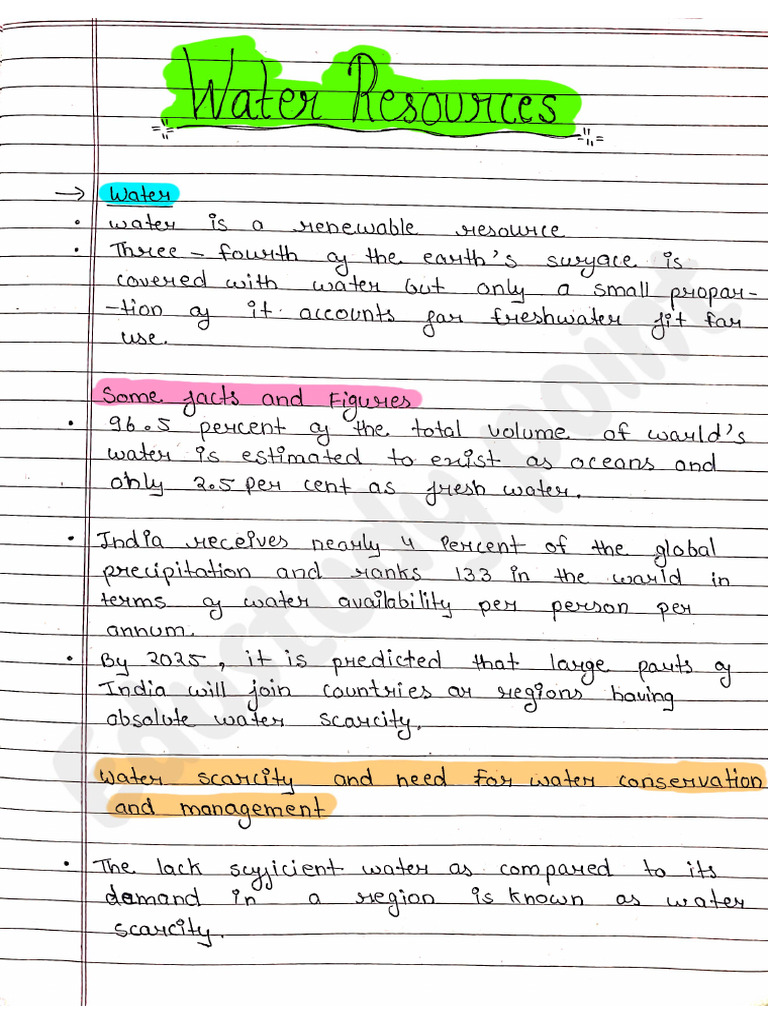 Water Resources
→ Water
• water is a renewable resource
• Three - fourth of the earth's surface is
covered with water but only a small propor-
-tion of it accounts for freshwater fit for
use.
Some facts and Figures
• 96.5 percent of the total volume of world's
water is estimated to exist as oceans and
only 2.5 per cent as fresh water.
• India receives nearly 4 Percent of the global
precipitation and ranks 133 in the world in
terms of water availability per person per
annum.
• By 2025, it is predicted that large parts of
India will join countries or regions having
absolute water scarcity.
water scarcity and need for water conservation
and management
• The lack sufficient water as compared to its
demand in a region is known as water
scarcity.
Edustudy point